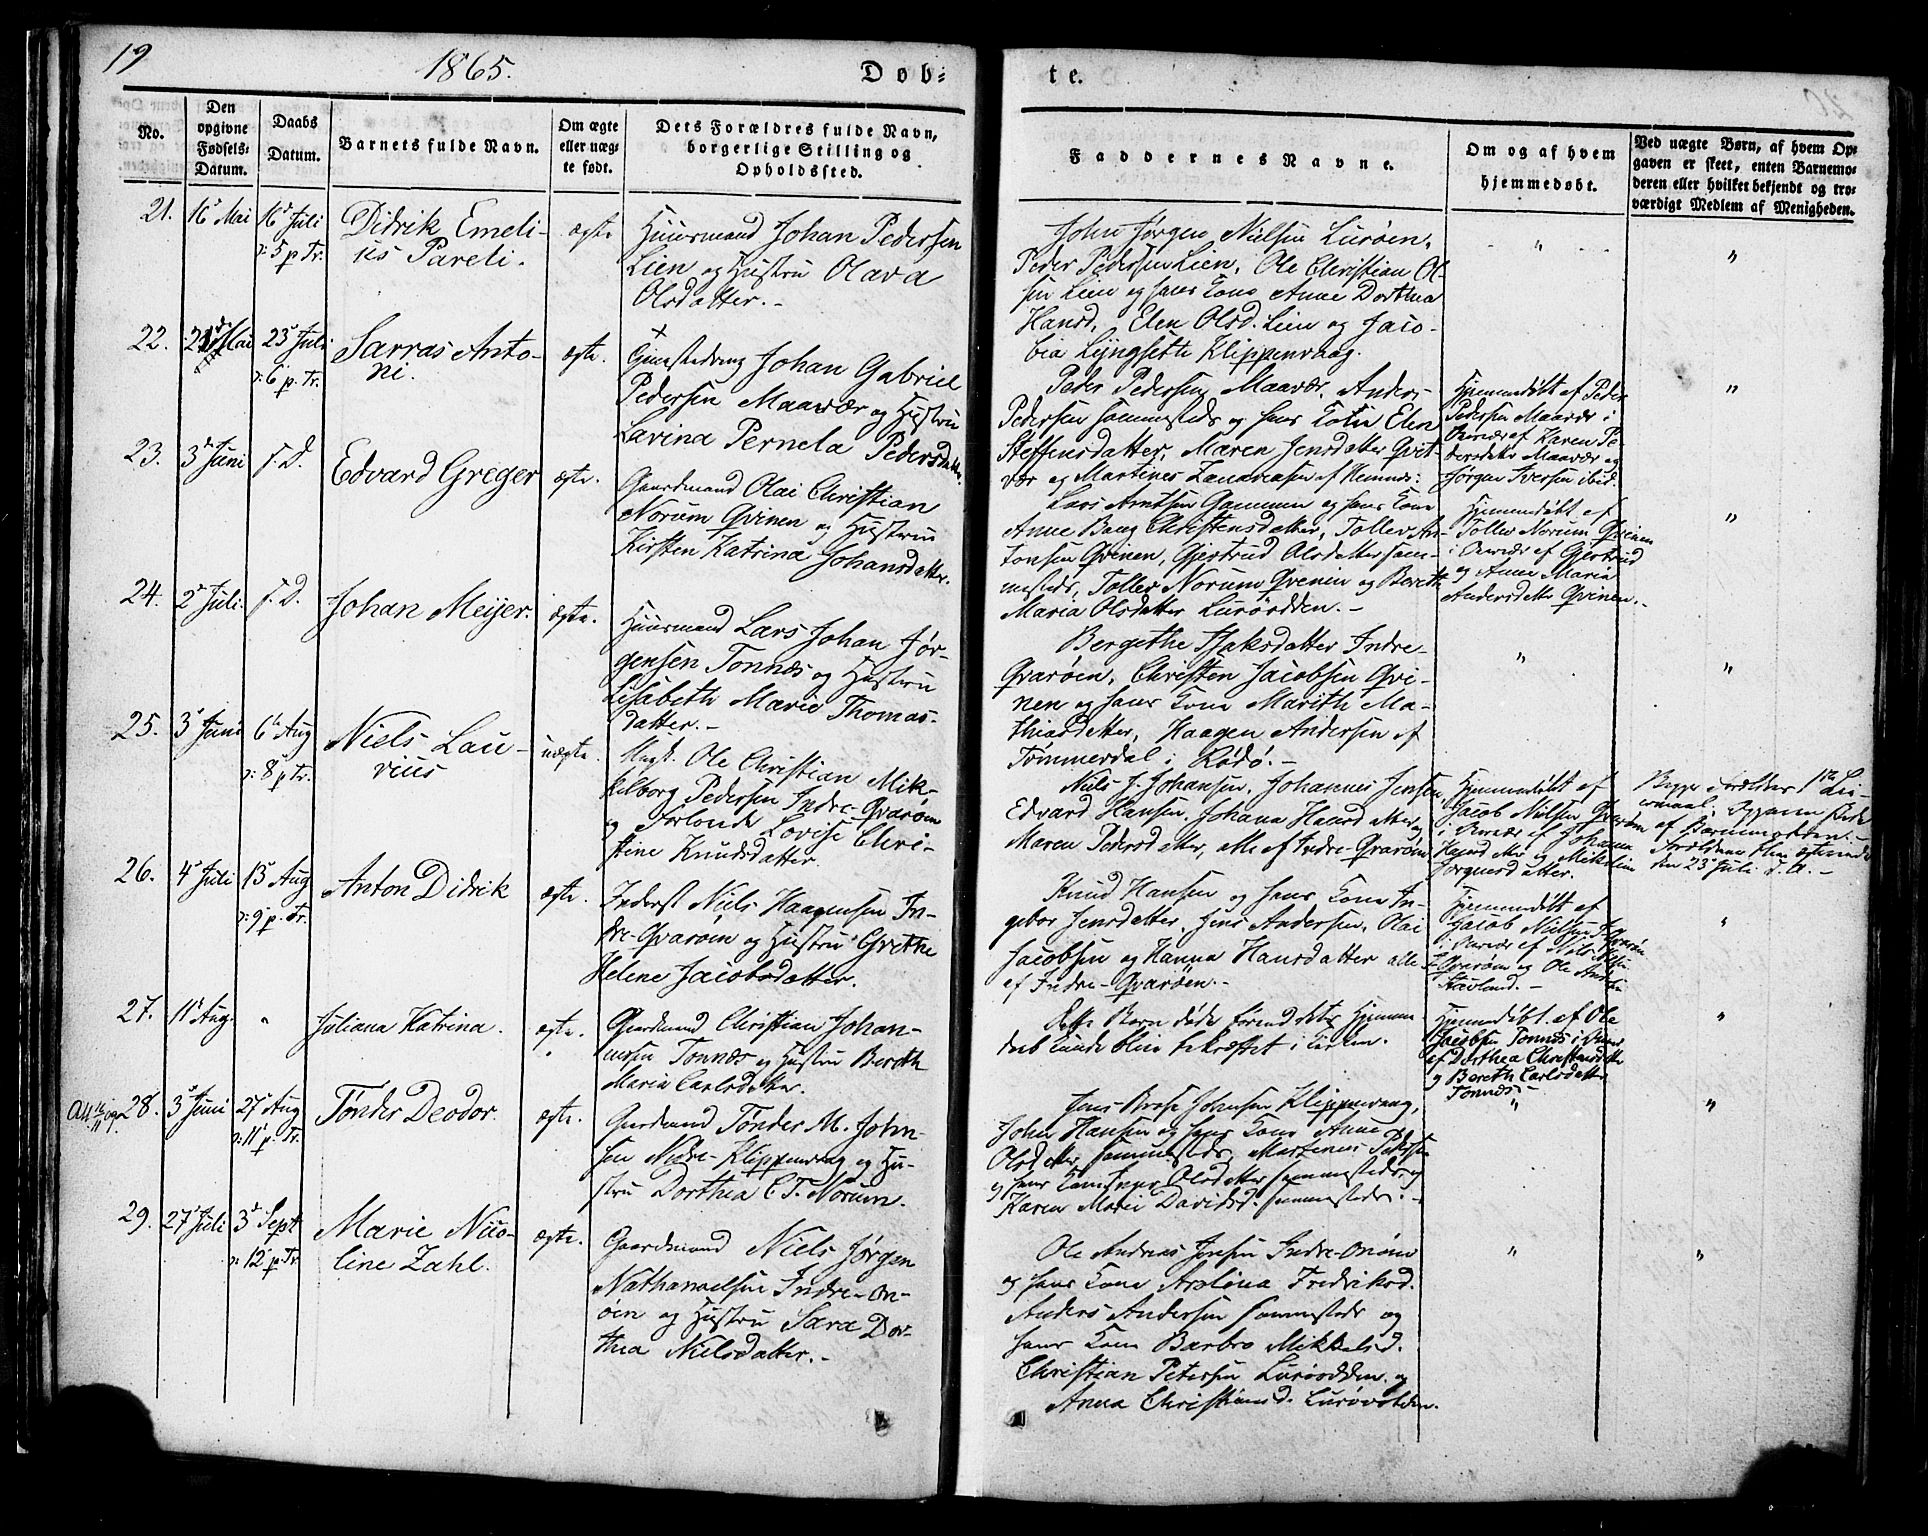 19
1865.
Døb=
te.
No.
Den
opgivne
Fødsels=
Datum.
Daabs
Datum.
Barnets fulde Navn.
Om ægte
eller uæg-
te født.
Dets Forældres fulde Navn,
borgerlige Stilling og
Opholdssted.
Faddernes Navne.
Om og af hvem
hjemmedøbt.
Ved uægte Børn, af hvem Op-
gaven er skeet, enten Barnemo-
deren eller hvilket bekjendt og tro-
værdigt Medlem af Menigheden.
21.
16 Mai
16 Juli
5 p. Tr.
Didrik Emeli-
us Pareli.
ægte
Huusmand Johan Pedersen
Lien og Hustru Olava
Olsdatter.-
John Jørgen Nielsen Lurøen,
Peder Pedersen Lien, Ole Christian Ol-
sen Lien og hans Kone Anne Dorthea
Hansd, Elen Olsd. Lien og Jaco-
bia Lyngsette Klippenvaag.
"
"
22.
Mai
23 Juli
6 p. Tr.
Sarras Anto-
ni.
ægte.
Johan Gabriel
Pedersen Maavær og Hustru
Lavina Pernela Pedersdatter.
Peder Pedersen Maavær, Anders
Pedersen sammesteds og hans Kone Elen
Steffensdatter, Maren Jensdatter Qvit-
vær og Martines Zacariasen af Nemnæs:
Hjemmedøbt af Peder
Pedersen Maavær i
Overvær af Karen Pe-
dersdatter Maavær og
Jørgen Iversen ibid.
"
23.
3 Juni
s. D.
Edvard Greger
ægte.
Gaardmand Olai Christian
Norum Qvinen og Hustru
Kirsten Katrina Johansdatter.
Lars Arntsen Gammen og hans Kone
Anne Berg Christensdatter, Toller An-
tonsen Qvinen, Gjertrud Olsdatter sam-
mesteds, Toller Norum Qvenin og Bereth
Maria Olsdatter Lurøodden.-
Hjemmedøbt af
Toller Norum Qvinen
i Overvær af Gjertrud
og Anne Maria
Andersdatter Qvinen.-
"
24.
2 Juli.
s. D.
Johan Meijer.
ægte.
Huusmand Lars Johan Jør-
gensen Tonnæs og Hustru
Lisabeth Marie Thomas-
datter.-
Bergethe Isaksdatter Indre-
Qvarøen, Christen Jacobsen Qvi-
nen og hans Kone Marith Ma-
thiasdatter, Haagen Andersen af
Tømmerdal i Rødø.-
"
"
25.
3 Juni
6 Aug
8 p. Tr.
Niels Lau-
rius
uægte.
Ungk. Ole Christian Mik-
kelborg Pedersen Indre-Qvarøen
og Forlovede Lovise Chri-
stine Knudsdatter.
Niels J. Johansen, Johannes Jensen,
Edvard Hansen, Johana Haarsdatter og
Maren Pedersdatter, alle af Indre-Qvarøen
Hjemmedøbt af
Jacob Nielsen Qvarøen
i Overvær af Johanna
og Mikeline
Jørgensdatter.
Begge Forældres 1ste Lei-
ermaal. Opgaven skede
af Barnemoderen.-
Forældrene bleve egteviede
den 23 Juli d. A.-
26.
4 Juli
13 Aug
9 p. Tr.
Anton Didrik
ægte.
Inderst Niels Haagensen In-
dre-Qvarøen og Hustru Grethe
Helene Jacobsdatter.
Knud Hansen og hans Kone In-
gebor Jensdatter, Jens Andersen, Olai
Jacobsen og Hanna Hansdatter alle
af Indre-Qvarøen.-
Hjemmedøbt af
Jacob Nielsen I. Qvarøen
i Overvær af Nils Nilsen
I. Qvarøen og Ole
"
27.
11 Aug.
"
Juliana Katrina.
ægte.
Gaardmand Christian Johan-
nessen Tonnæs og Hustru Bereth
Maria Carlsdatter.
Dette Barn døde forend dets Hjemme-
daab kunde blive bekræftet i Kirken.
Hjemmedøbt af Ole
Jacobsen Tonnes i Overvær
af Dorthea Christensdatter
og Bereth Carlsdatter
Tonnes.-
"
28.
3 Juni
27 Aug
11 p. Tr.
Tønder Deodor.
ægte.
Gaardmand Tønder M. John-
sen Nedre-Klippenvaag og Hu-
stru Dorthea C. T. Norum.
Jens Johnsen Klippenvaag,
John Hansen og hans Kone Anne
Olsdatter sammesteds, Martinus Pedersen
og hans Kone Olsdatter sammesteds og
Karen Marie Davidsd. sammesteds.-
"
"
29.
27 Juli
3 Sept
12 p. Tr
Marie Nico-
line Zahl.
ægte.
Gaardmand Niels Jørgen
Nathanaelsen Indre-On-
øen og Hustru Sara Dor-
thea Nielsdatter.-
Ole Andreas Jensen Indre-Onøen
og hans Kone Arolina Fredriksd.
Anders Andersen sammesteds og
hans Kone Barbro Mikkelsd.
Christian Petersen Lurøodden og
Anna Christiansd. Lurøvolden.
"
"